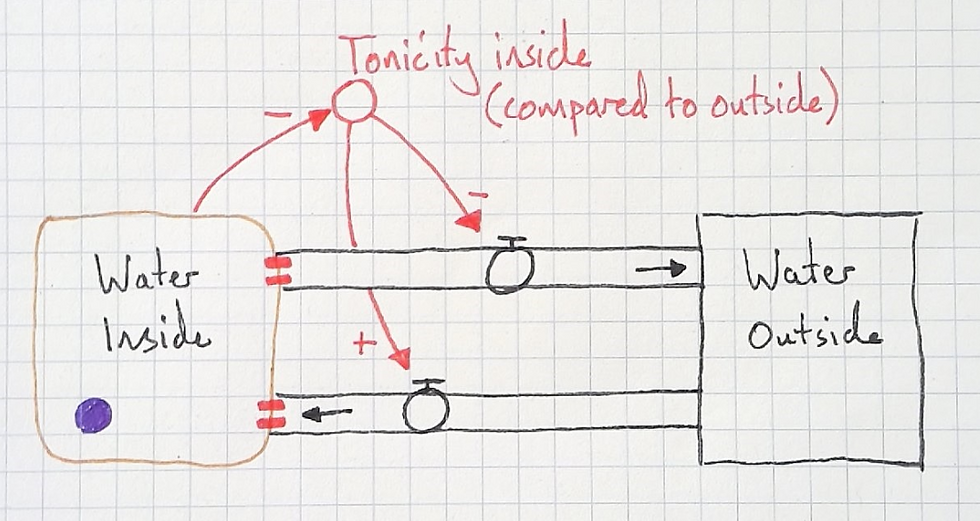 Tonicity inside
(compared to outside)
-
-
Water
Inside
Water
Outside
+